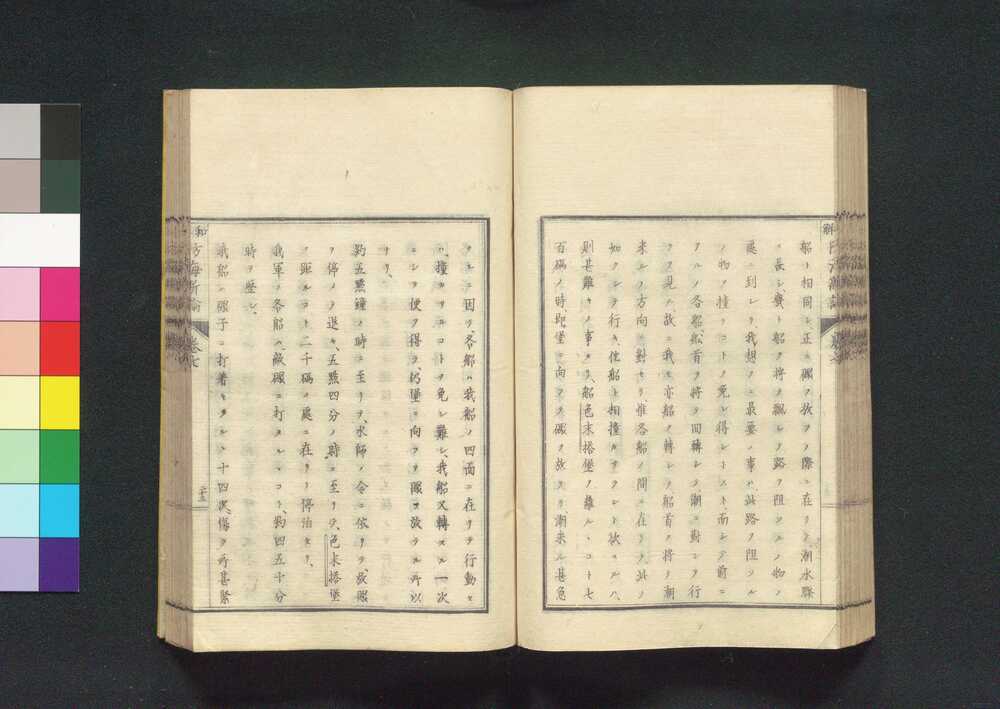 船ト相同シ正ニ礮ヲ放ツノ際ニ在リ、潮水驟
ニ長シ、幾ト船ヲ将テ飄シ、路ヲ阻ツルノ物ノ
處ニ到レリ、我想フニ最要ノ事ハ、此路ヲ阻ツル
ノ物ノ撞クコトヲ免レ得ントス、而シテ前ニ
アルノ各船、船首ヲ将テ回轉シ、潮ニ對シテ行
クヲ見ル、故ニ我モ亦船ヲ轉シ、船首ヲ将テ潮
来ルノ方向ニ對セリ、惟各船ノ間ニ在リテ、此ノ
如クシテ行キ、他船ト相撞ルナラント欲スルハ、
則甚難キノ事タリ、船色末搭堡ヲ離ルヽコト七
百碼ノ時、即堡ニ向テ礮ヲ放テリ、潮来ル甚急
ナルニ因テ、各船ハ我船ノ四面ニ在リテ行動セ
ハ、撞カサルコトヲ免レ難シ、我船又轉スル一次
ニシテ便ヲ得テ、仍堡ニ向テ礮ヲ放テル所以
ナリ、
約五點鐘ノ時ニ至リテ、水師ノ令ニ依リテ、放礮
ヲ停メテ退キ、五點四分ノ時ニ至リテ、色末搭堡
ヲ距ルコト二千碼ノ處ニ在リテ停泊セリ、
我軍ノ各船ハ、敵礮ニ打タルヽコト、約四五十分
時ヲ歴シ、
我船ハ礮子ニ打着セラルヽ十四次、傷ヲ所甚緊
和
防海新論
巻七